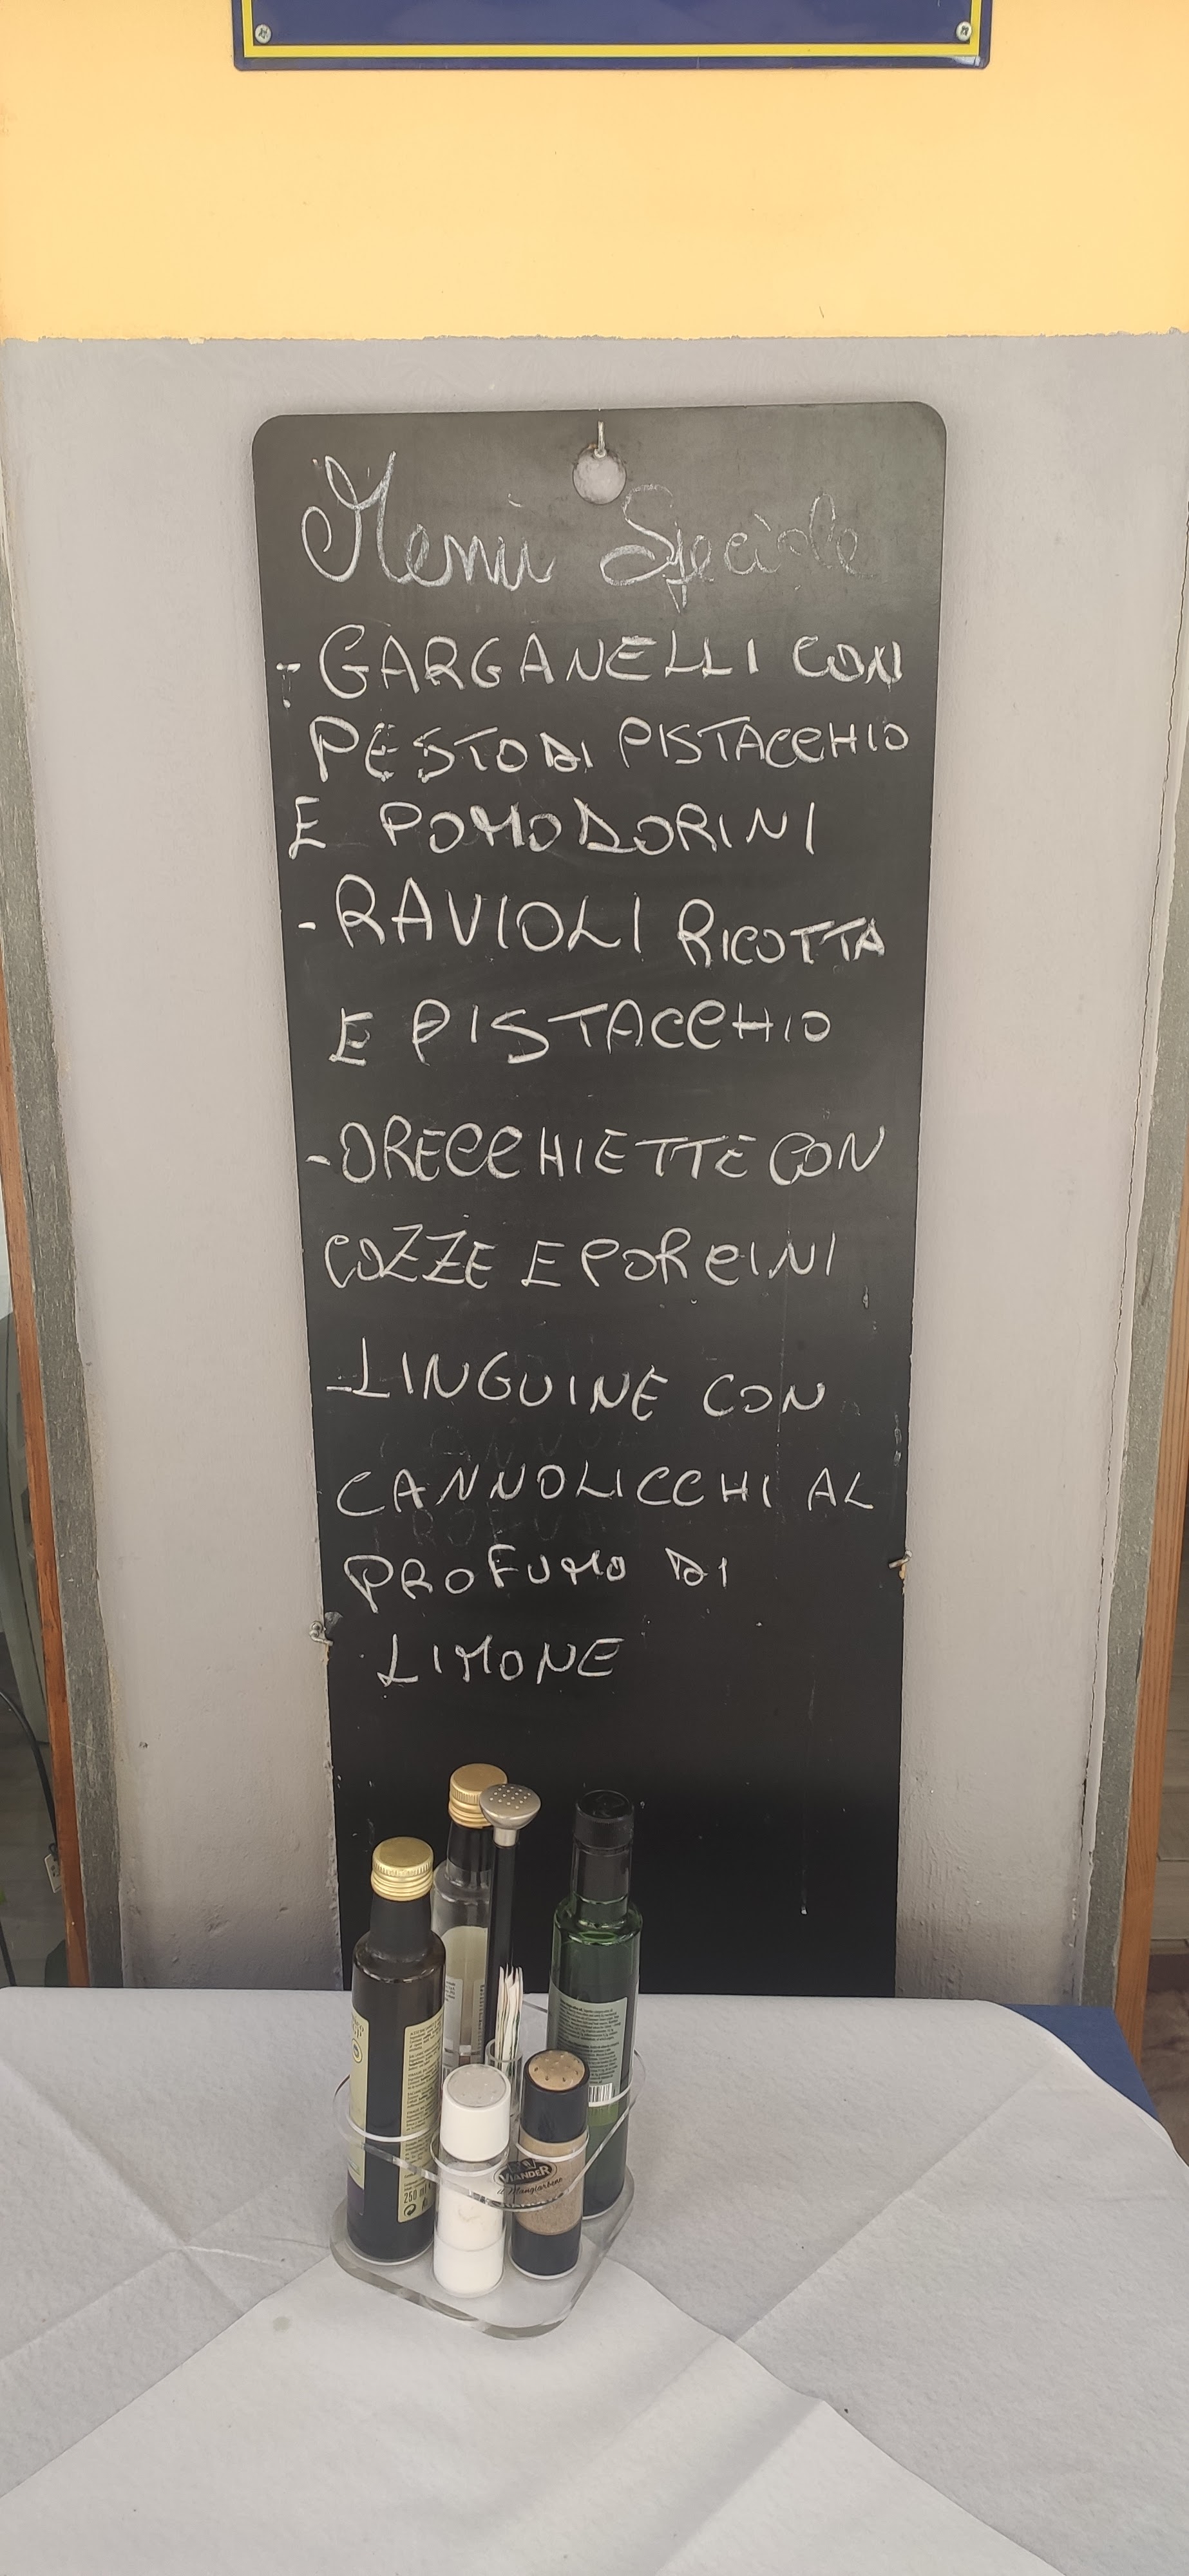 Menù Speciale
- GARGANELLI CON
PESTO DI PISTACCHIO
E POMODORINI
- RAVIOLI RICOTTA
E PISTACCHIO
- ORECCHIETTE CON
COZZE E PORCINI
- LINGUINE CON
CANNOLICCHI AL
PROFUMO DI
LIMONE
VIANDER
il Mangiarbene
250 ml